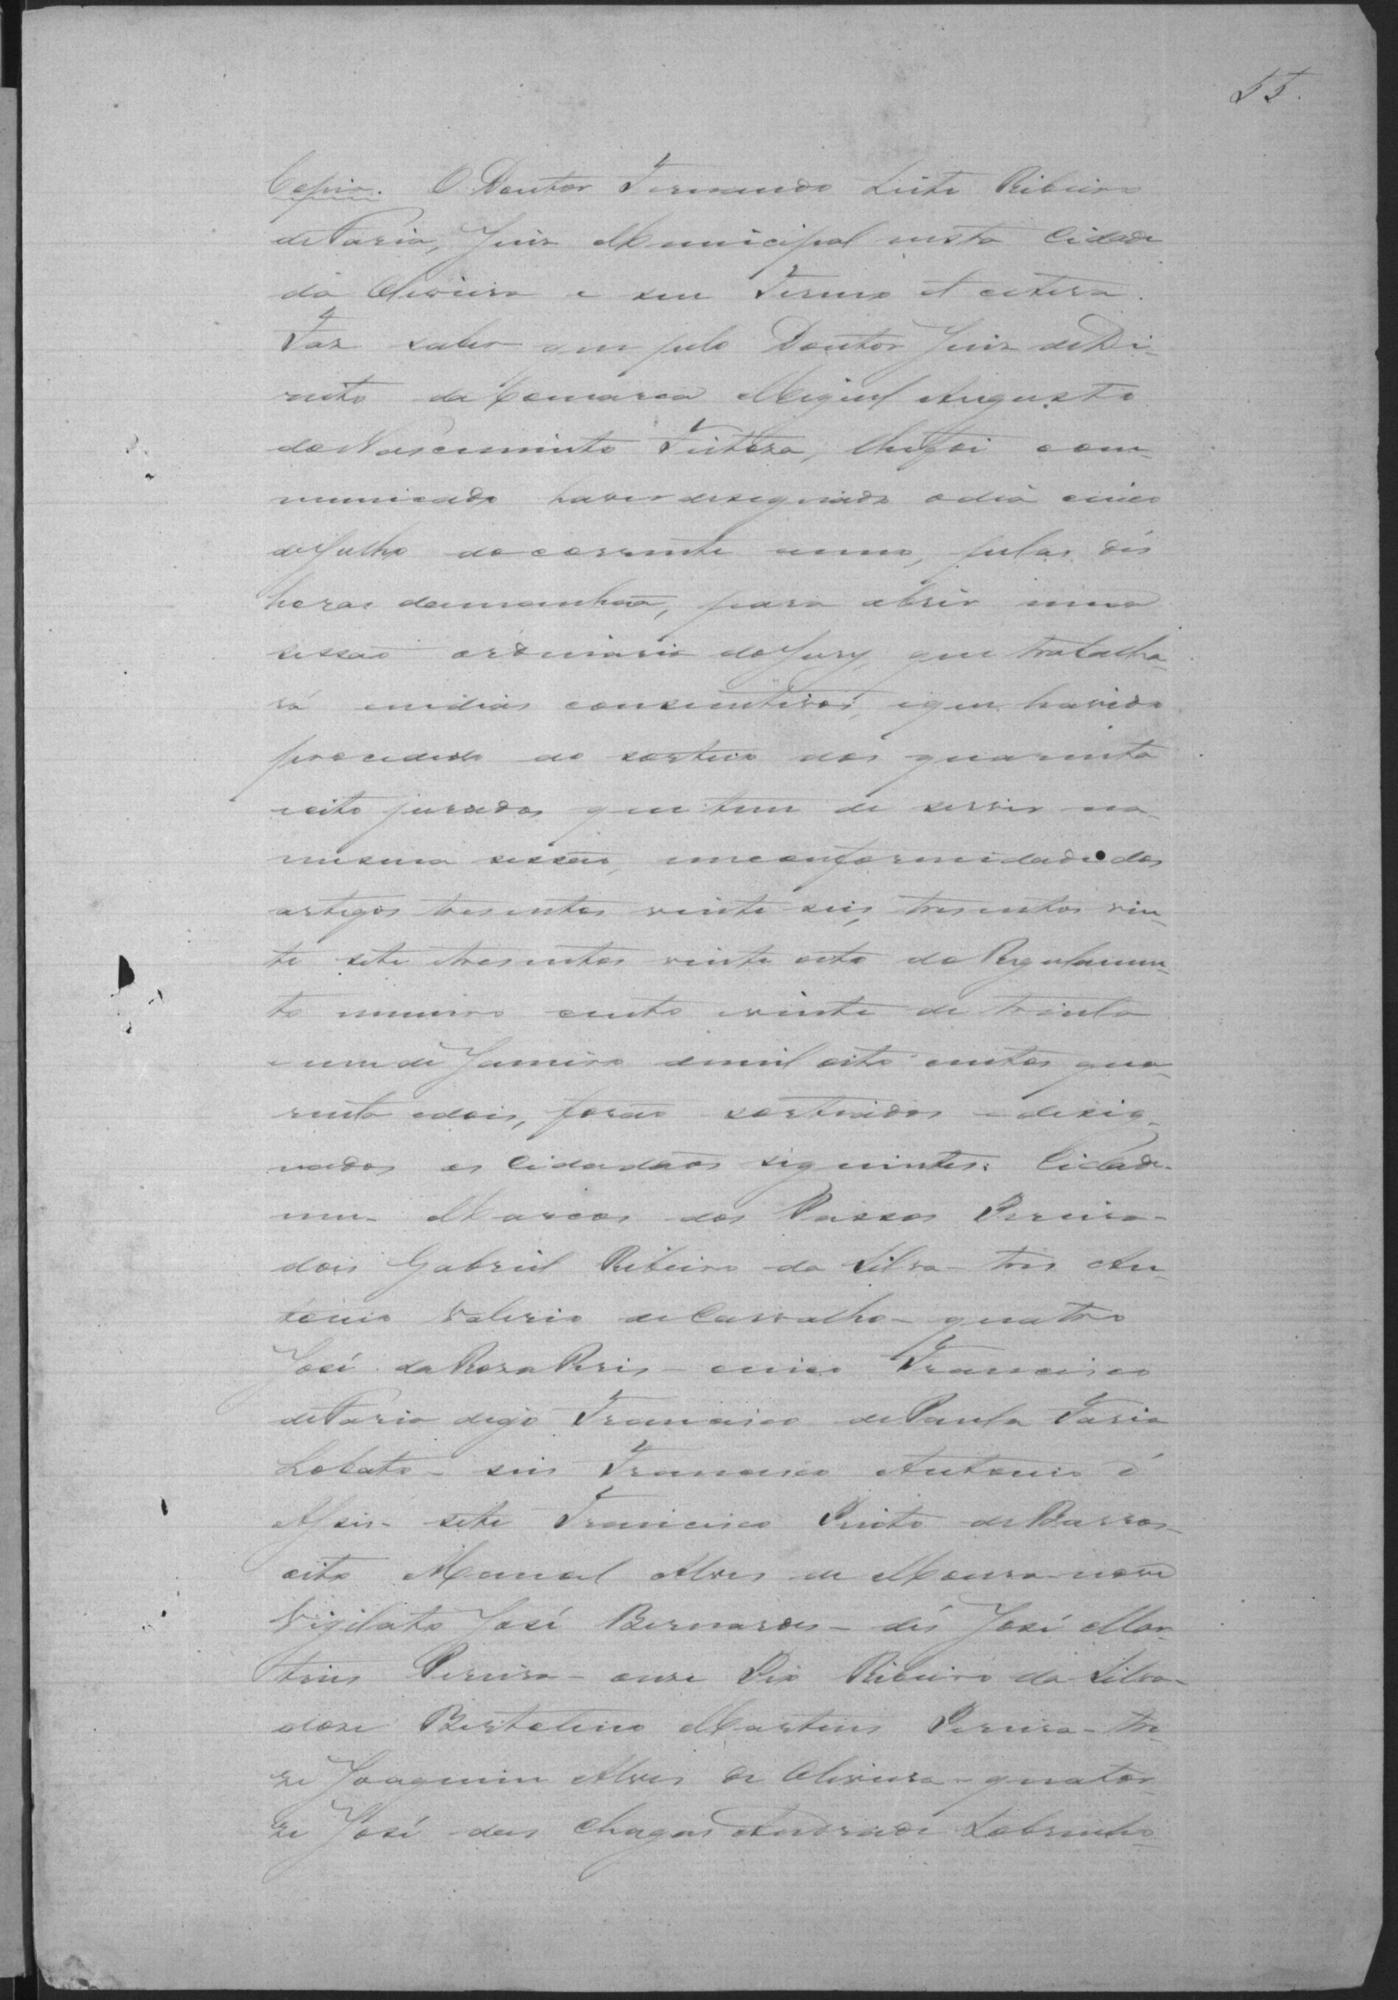 55.
Copia. O Doutor Fernando Leite Ribeiro
de Faria, Juiz Municipal nesta Cidade
da Oliveira e seu Termo et cetera.
Faz saber que pelo Doutor Juiz de Di-
reito da Comarca Miguel Augusto
do Nascimento Feitoza, lhe foi com-
municado haver designado o dia cinco
de Julho do corrente anno, pelas dés
horas da manhaã, para abrir uma
sessão ordinaria do Jury, que trabalha-
rá em dias consecutivos, e que havido
procedido ao sorteio dos quarenta
e oito jurados que tem de servir na
mesma sessão, em conformidade dos
artigos tresentos vinte seis, tresentos vin-
te sete e tresentos vinte oito do Regulamen-
to numero cento e vinte de trinta
e um de Janeiro de mil oito centos qua-
renta e dois, forão sorteados e desig-
nados os Cidadãos siguintes: Cidade.
um- Marcos dos Passos Pereira-
dois Gabriel Ribeiro da Silva- tres An-
tonio Valerio de Carvalho- quatro
José da Roza Reis- cinco Francisco
de Faria digo Francisco de Paula Faria
Lobato- seis Francisco Antonio d'
Assis- sete Francisco Pinto de Barros-
oito Manoel Alves de Moura- nove
Vigilato José Bernardes- dés José Mar-
tins Pereira- onze Pio Ribeiro da Silva-
doze Bertolino Martins Pereira- tre-
ze Joaquim Alves de Oliveira- quator-
ze José das Chagas Andrade Sobrinho-